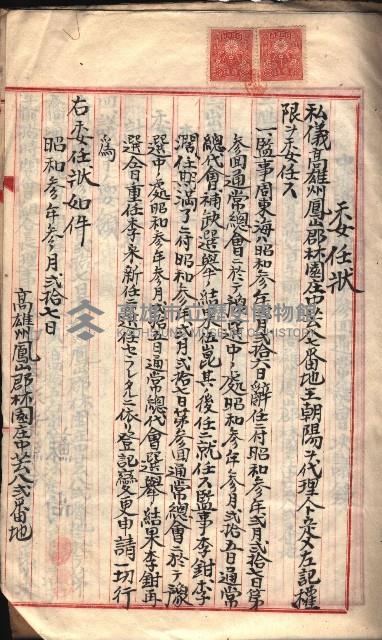 委任狀
私儀高雄州鳳山郡林園庄中芸八七番地王朝陽ヲ代理人ト定メ左記權
限ヲ委任ス
一、監事周東海ハ昭和參年貳月貳拾六日辭任ニ付昭和參年貳月貳拾七日第
參回通常總會ニ於テ豫選中ノ處昭和參年參月貳拾五日通常
總代會補缺選舉ノ結果伍崑其ノ後任ニ就任ス監事李鉗李
濶任期滿了ニ付昭和參年貳月貳拾七日第參回通常總會ニ於テ豫
選中ノ處昭和參年參月貳拾五日通常總代會ノ選舉ノ結果李鉗再
選會重任李來新任ニ選任セラレタルニ依リ登記變更申請一切行
爲
右委任狀如件
昭和參年參月貳拾七日
高雄州鳳山郡林園庄中芸八貳番地
高雄市立歷史博物館